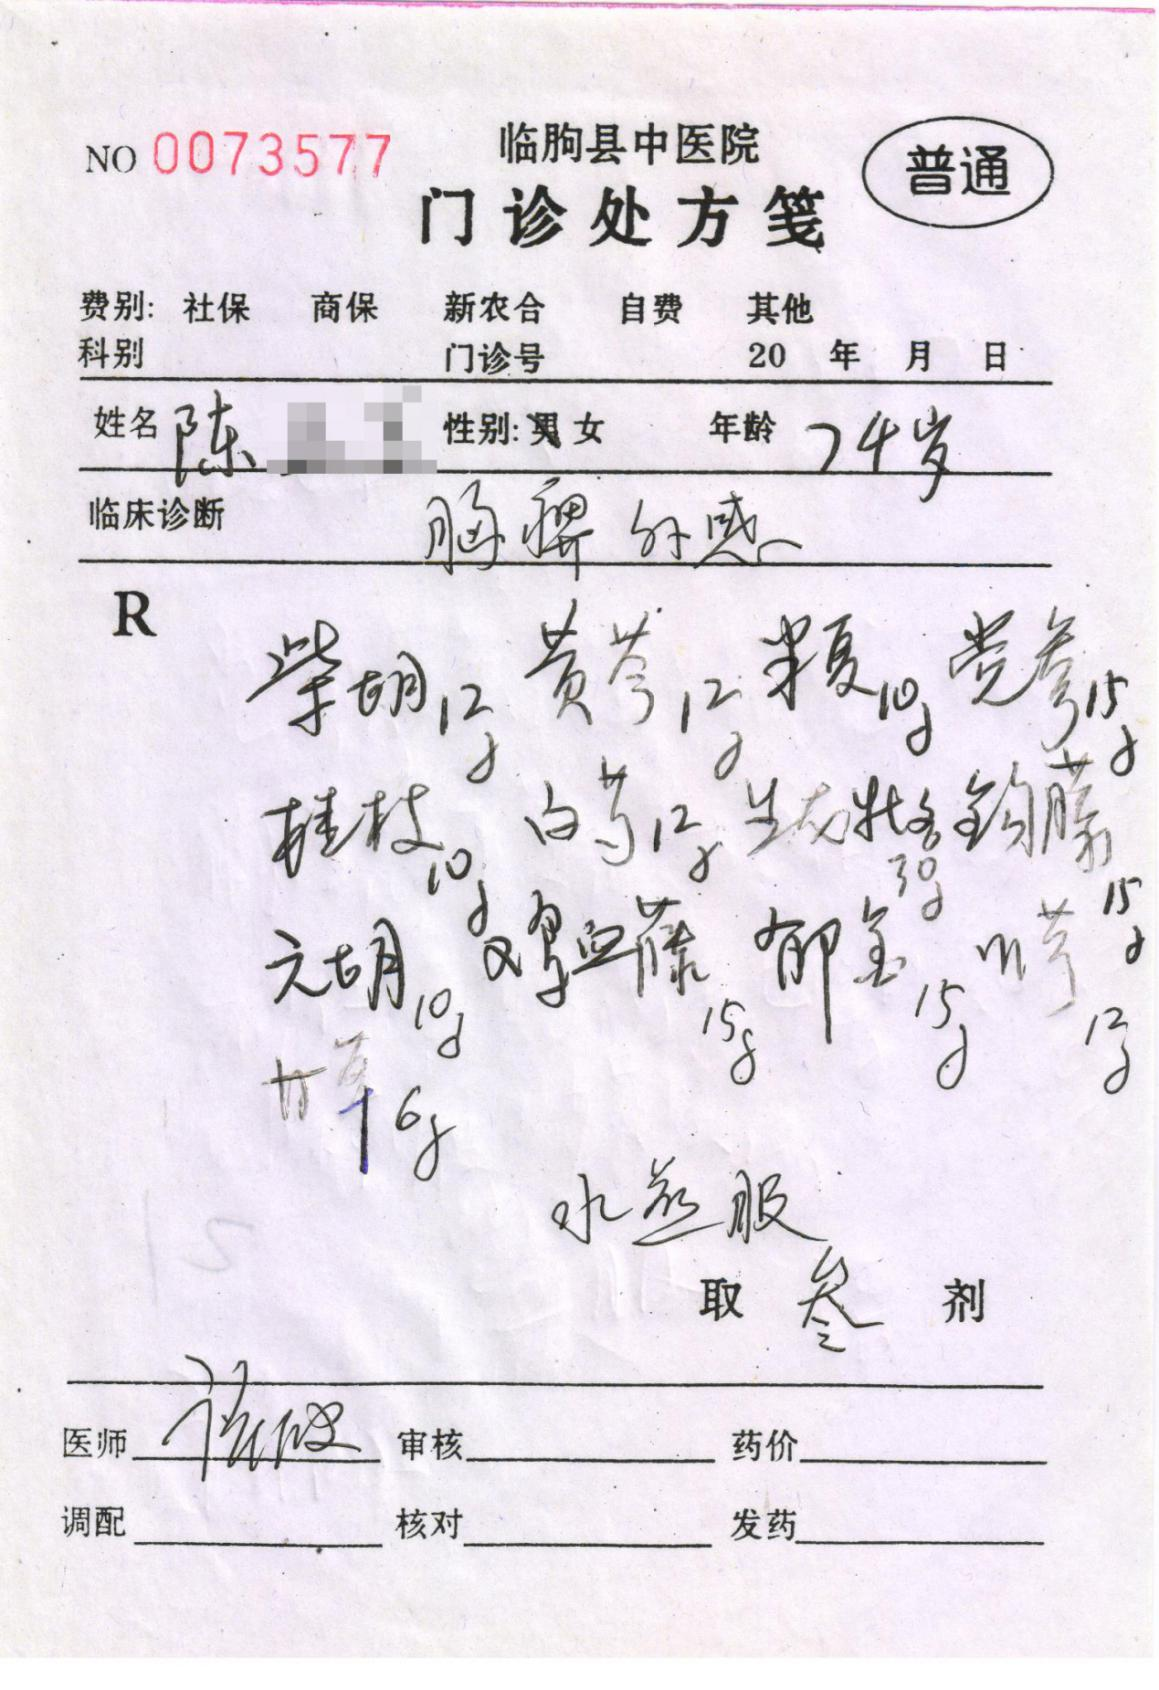 NO 0073577
临朐县中医院
普通
门诊处方笺
费别: 社保 商保 新农合 自费 其他
科别 门诊号 20 年 月 日
姓名 陈 性别: 男 女 年龄 74岁
临床诊断 胸痹 外感
R
柴胡12g 黄芩12g 半夏10g 党参15g
桂枝10g 白芍12g 生龙牡各30g 钩藤15g
元胡10g 鸡血藤15g 郁金15g 川芎12g
甘草6g
水煎服
取 叁 剂
医师 审核 药价
调配 核对 发药